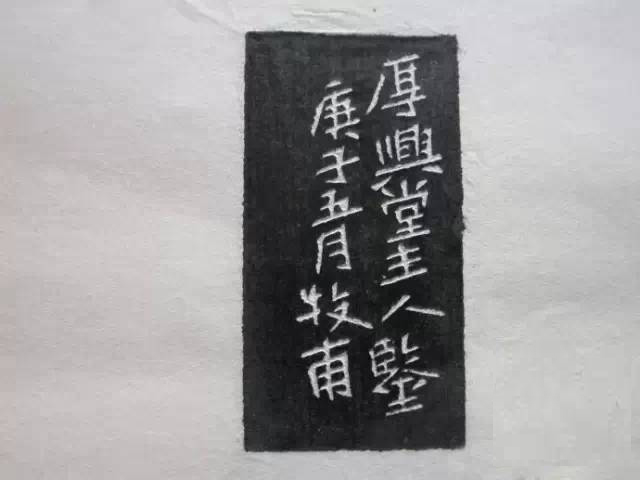 厚興堂主人鑒
庚子五月牧甫